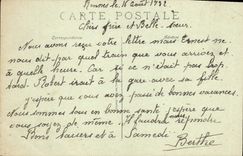 Rimons, le 16 août 1922
CARTE POSTALE
Cher frère et Belle-sœur.
Nous avons reçu votre lettre mais Ernest ne
nous dit par quel train que vous arrivez et
à quelle heure. Car si ce n'était pas trop
tard Robert irait à la gare avec sa fille.
J'espère que vous avez passé de bonnes vacances.
Nous sommes tous en bonne santé j'espère que
vous soyez de même. Il faudrait répondre
Bons baisers et à Samedi
Berthe